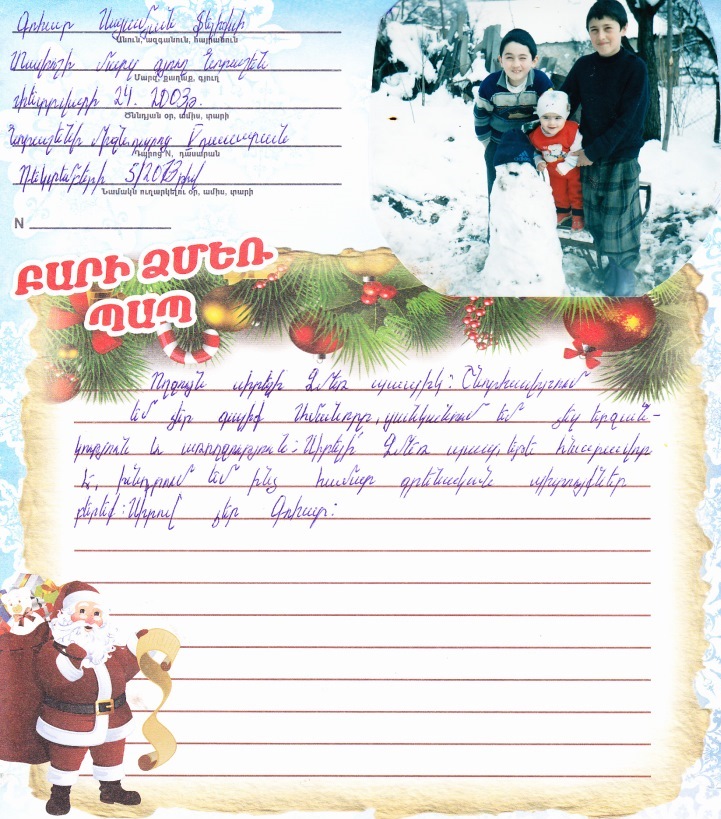 Գոհար Սաղամյան Ֆելիքսի
Անուն, ազգանուն, հայրանուն
Տավուշի մարզ գյուղ Նորաշեն
Մարզ, քաղաք, գյուղ
փետրվարի 24. 2003թ.
Ծննդյան օր, ամիս, տարի
Նորաշենի միջն. դպրոց V դասարան
Դպրոց N, դասարան
Դեկտեմբերի 5/2013թիվ
Նամակն ուղարկելու օր, ամիս, տարի
N
ԲԱՐԻ ՁՄԵՌ
ՊԱՊ
Ողջույն սիրելի Ձմեռ պապիկ: Շնորհավորում
եմ ձեր գալիք Ամանորը, ցանկանում եմ ձեզ երջան-
կություն և առողջություն: Սիրելի Ձմեռ պապ, եթե հնարավոր
է, խնդրում եմ ինձ համար գրենական պիտույքներ
բերեք: Սիրով ձեր Գոհար: